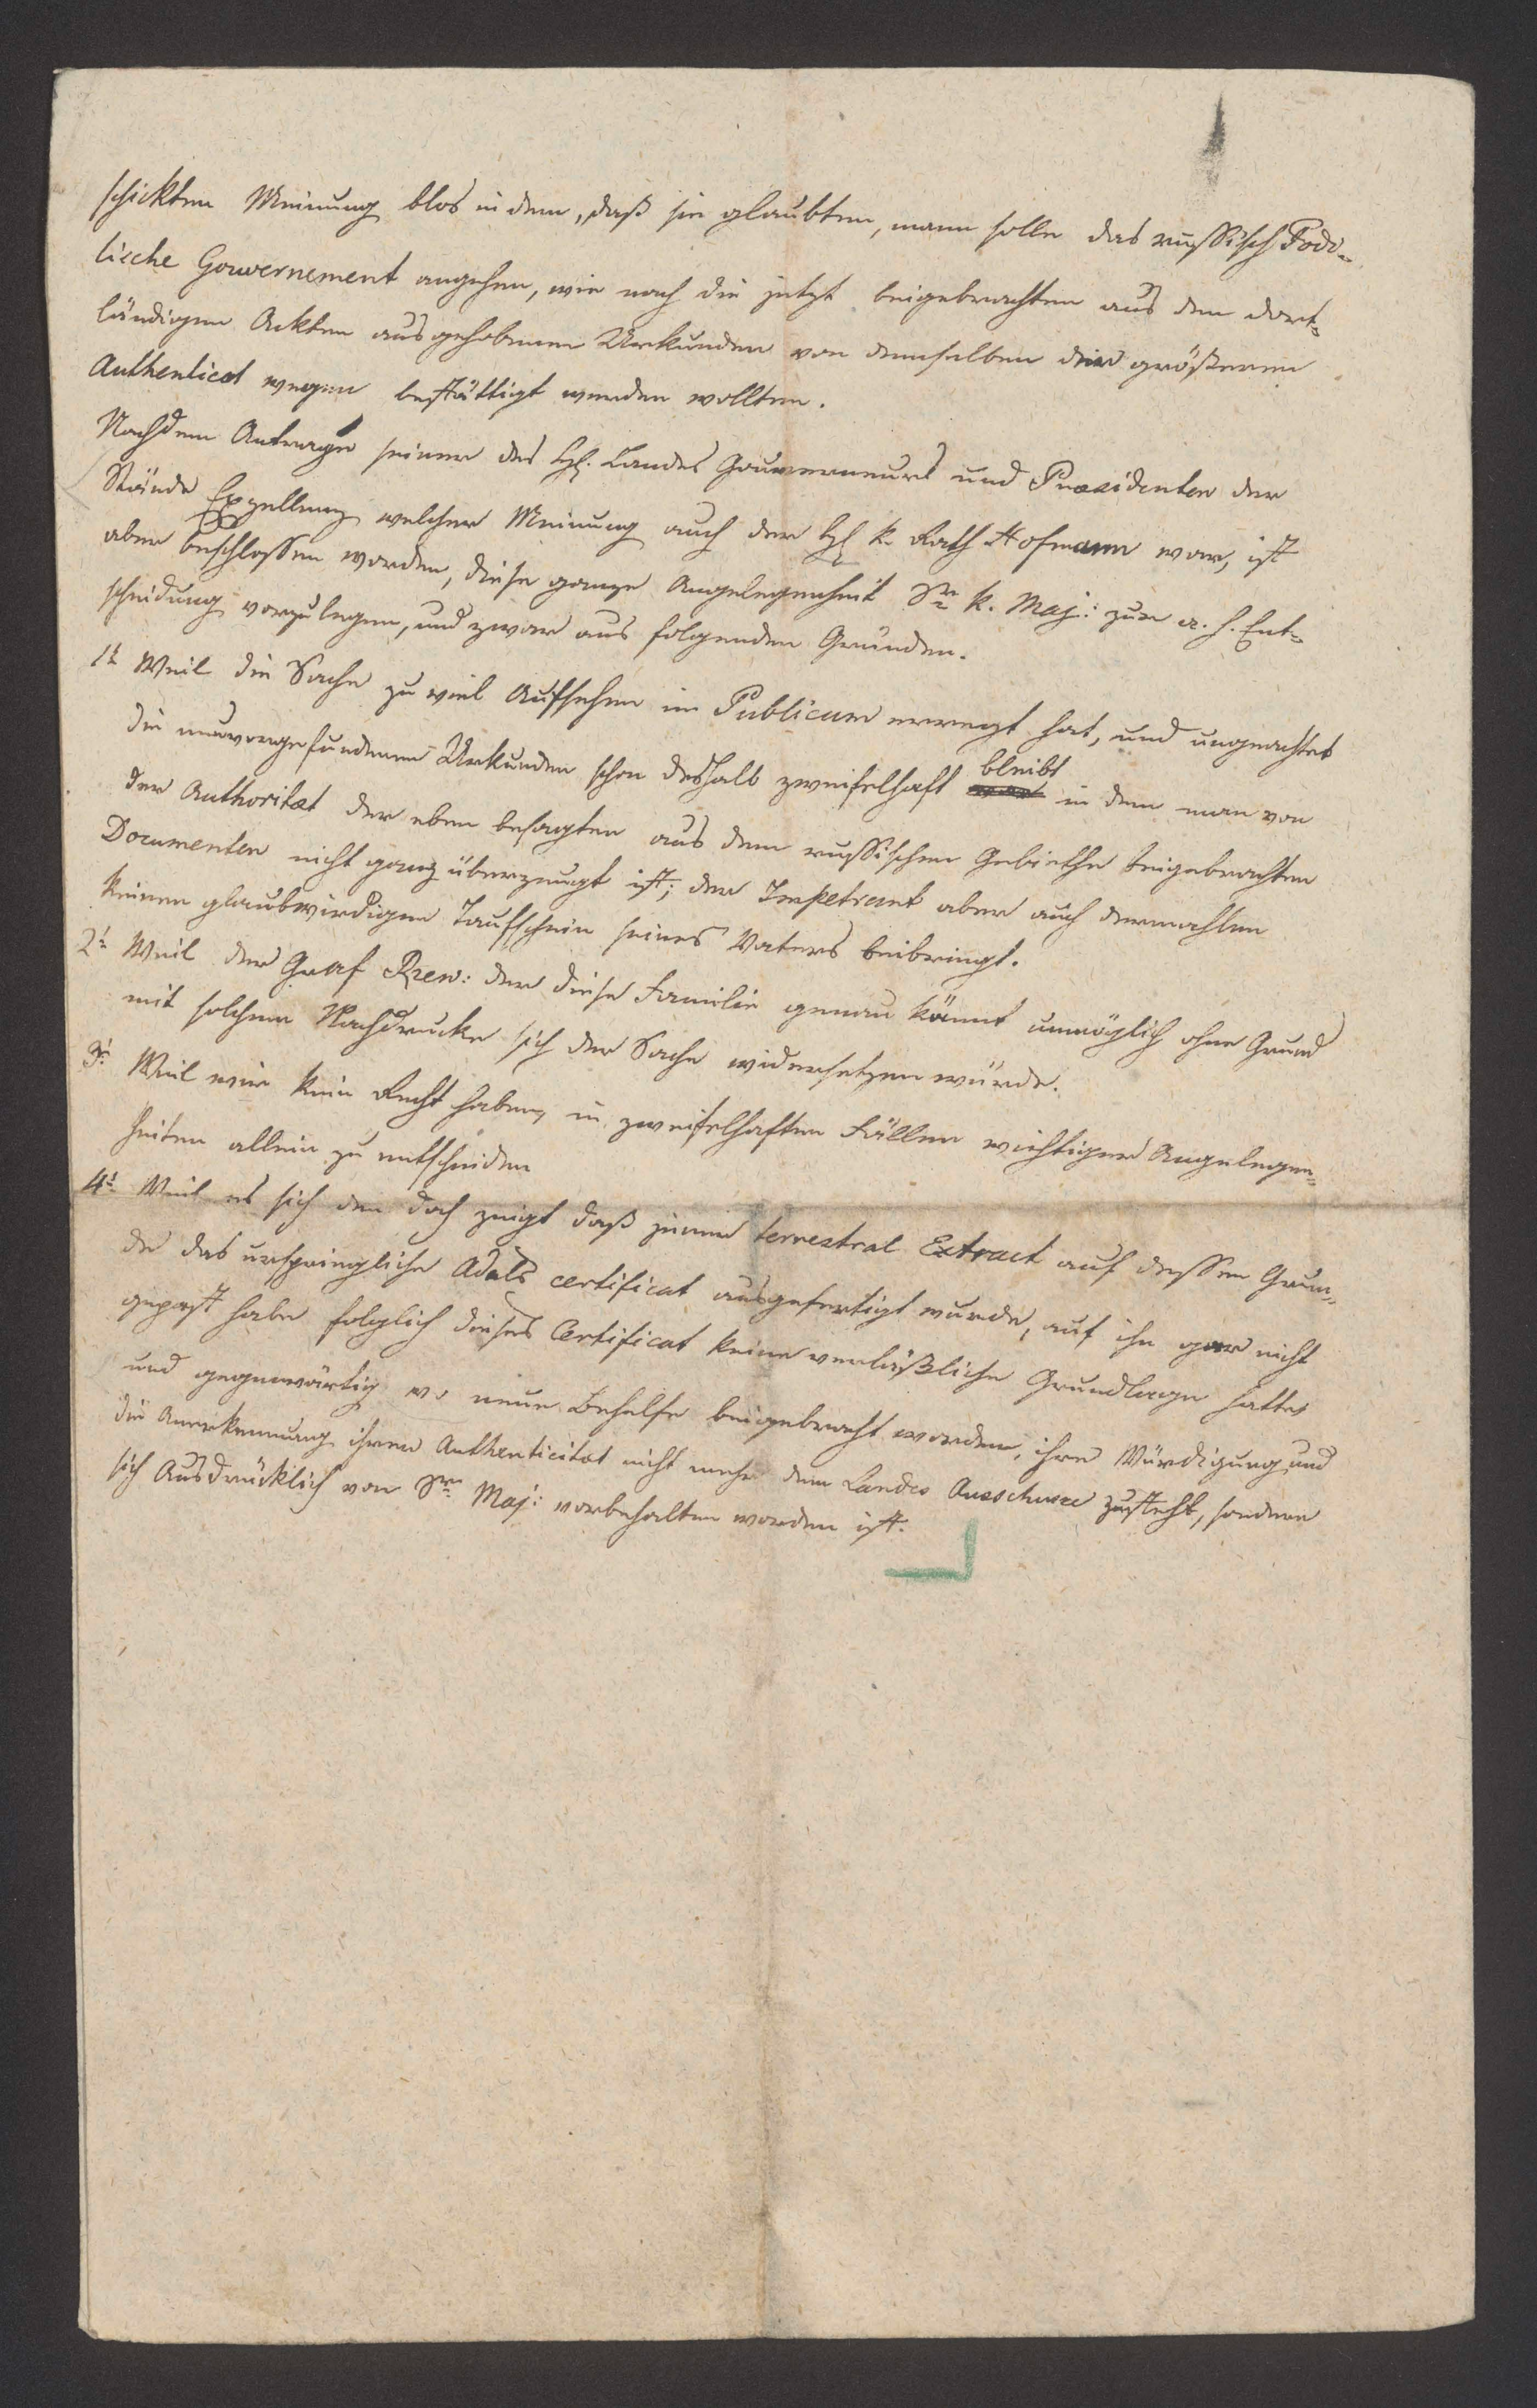 schickten Meinung blos in dem, daß sie glaubten, mann solle das russisch Podo-
lische Gouvernement angehen, wie nach die jetzt beigebrachten aus den dort-
ländigen Ackten ausgehobenen Urkunden von demselben der größeren
Authenticat wegen bestättigt werden wollten.
Nachdem Antrage seiner des H. Landes Gouverneurs und Praesidenten der
Stände Exzellenz welcher Meinung auch der H k. Rath Hofmann war, ist
aber beschlossen worden, diese ganze Angelegenheit Sr k. Maj: zur a. h. Ent-
scheidung vorzulegen, und zwar aus folgenden Gründen.
1t Weil die Sache zu viel Aufsehen im Publicum erregt hat, und ungeachtet
die neuvorgefundenen Urkunden schon deshalb zweifelhaft bleibt in dem man von
der Authoritat der eben besagten aus dem russischen Gebiethe beigebrachten
Documenten nicht ganz überzeugt ist; der Impetrant aber auch dermahlen
keinen glaubwirdigen Taufschein seines Vaters beibringt.
2t Weil der Graf Rzew: der diese Familie genau kännt unmöglich ohne Grund
mit solchem Nachdrucke sich der Sache widersetzen würde.
3t Weil wir kein Recht haben, in zweifelhaften Fällen wichtiger Angelegen-
heiten allein zu entscheiden
4t Weil es sich den doch zeigt daß jener terrestral Extract auf dessen Grun-
de das urspringliche Adels certificat ausgefertigt wurde, auf ihn gar nicht
gepast habe folglich dieses Certificat keine verläßliche Grundlage hatte,
und gegenwärtig wo neue Behelfe beigebracht worden, ihre Würdigung und
die Anerkennung ihrer Authenticitat nicht mehr dem Landes Ausschusse zusteht, sondern
sich Ausdrücklich von Sr Maj: vorbehalten worden ist.